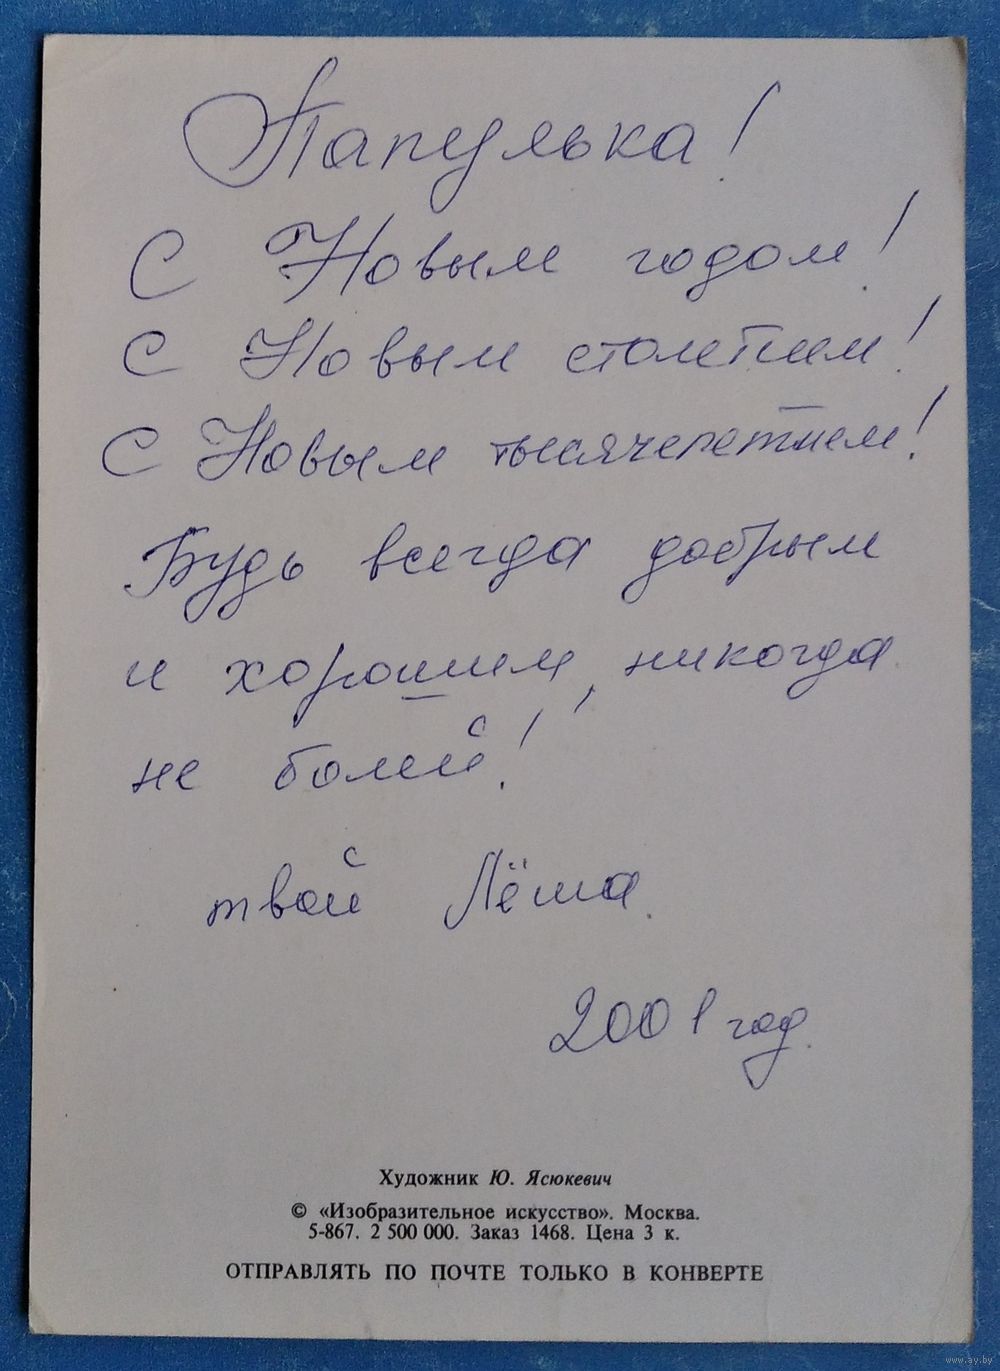 Папулька!
С Новым годом!
С Новым столетием!
С Новым тысячелетием!
Будь всегда добрым
и хорошим, никогда
не болей!
твой Лёша.
2001 год.
Художник Ю. Ясюкевич
© «Изобразительное искусство». Москва.
5-867. 2 500 000. Заказ 1468. Цена 3 к.
ОТПРАВЛЯТЬ ПО ПОЧТЕ ТОЛЬКО В КОНВЕРТЕ
www.ay.by